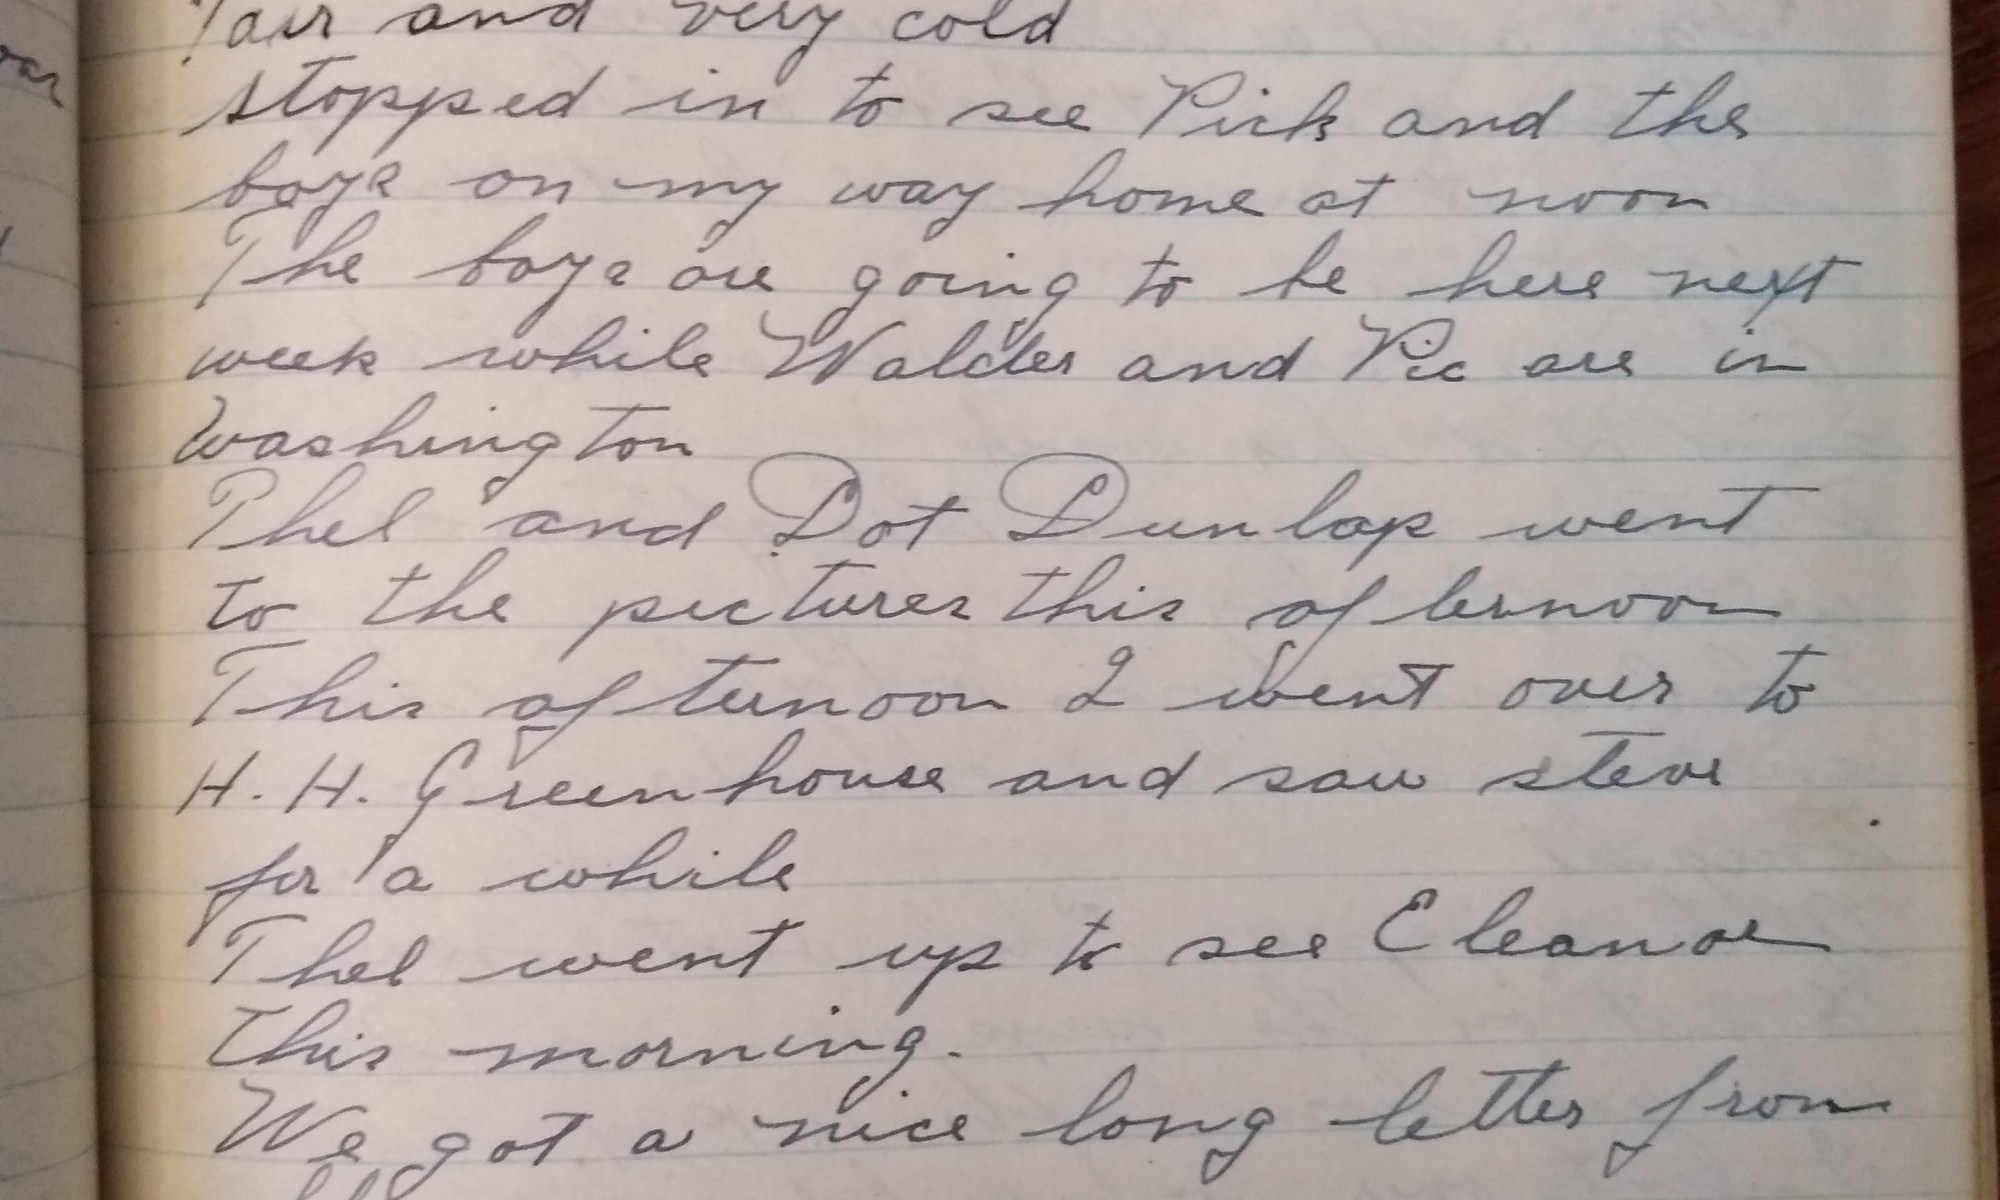 Fair and very cold
stopped in to see Pick and the
boys on my way home at noon
The boys are going to be here next
week while Walder and Pic are in
Washington
Thel and Dot Dunlap went
to the pictures this afternoon
This afternoon I went over to
H. H. Greenhouse and saw steve
for a while
Thel went up to see Eleanor
this morning.
We got a nice long letter from